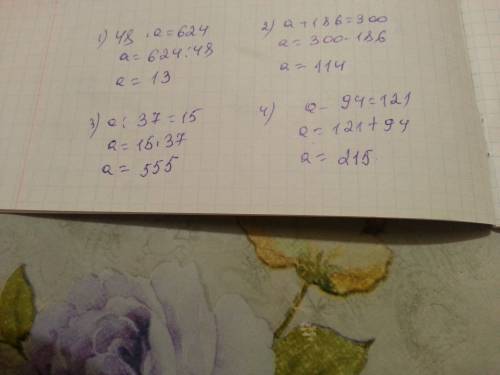 1) 48 · a = 624
a = 624 : 48
a = 13
2) a + 186 = 300
a = 300 - 186
a = 114
3) a : 37 = 15
a = 15 · 37
a = 555
4) a - 94 = 121
a = 121 + 94
a = 215